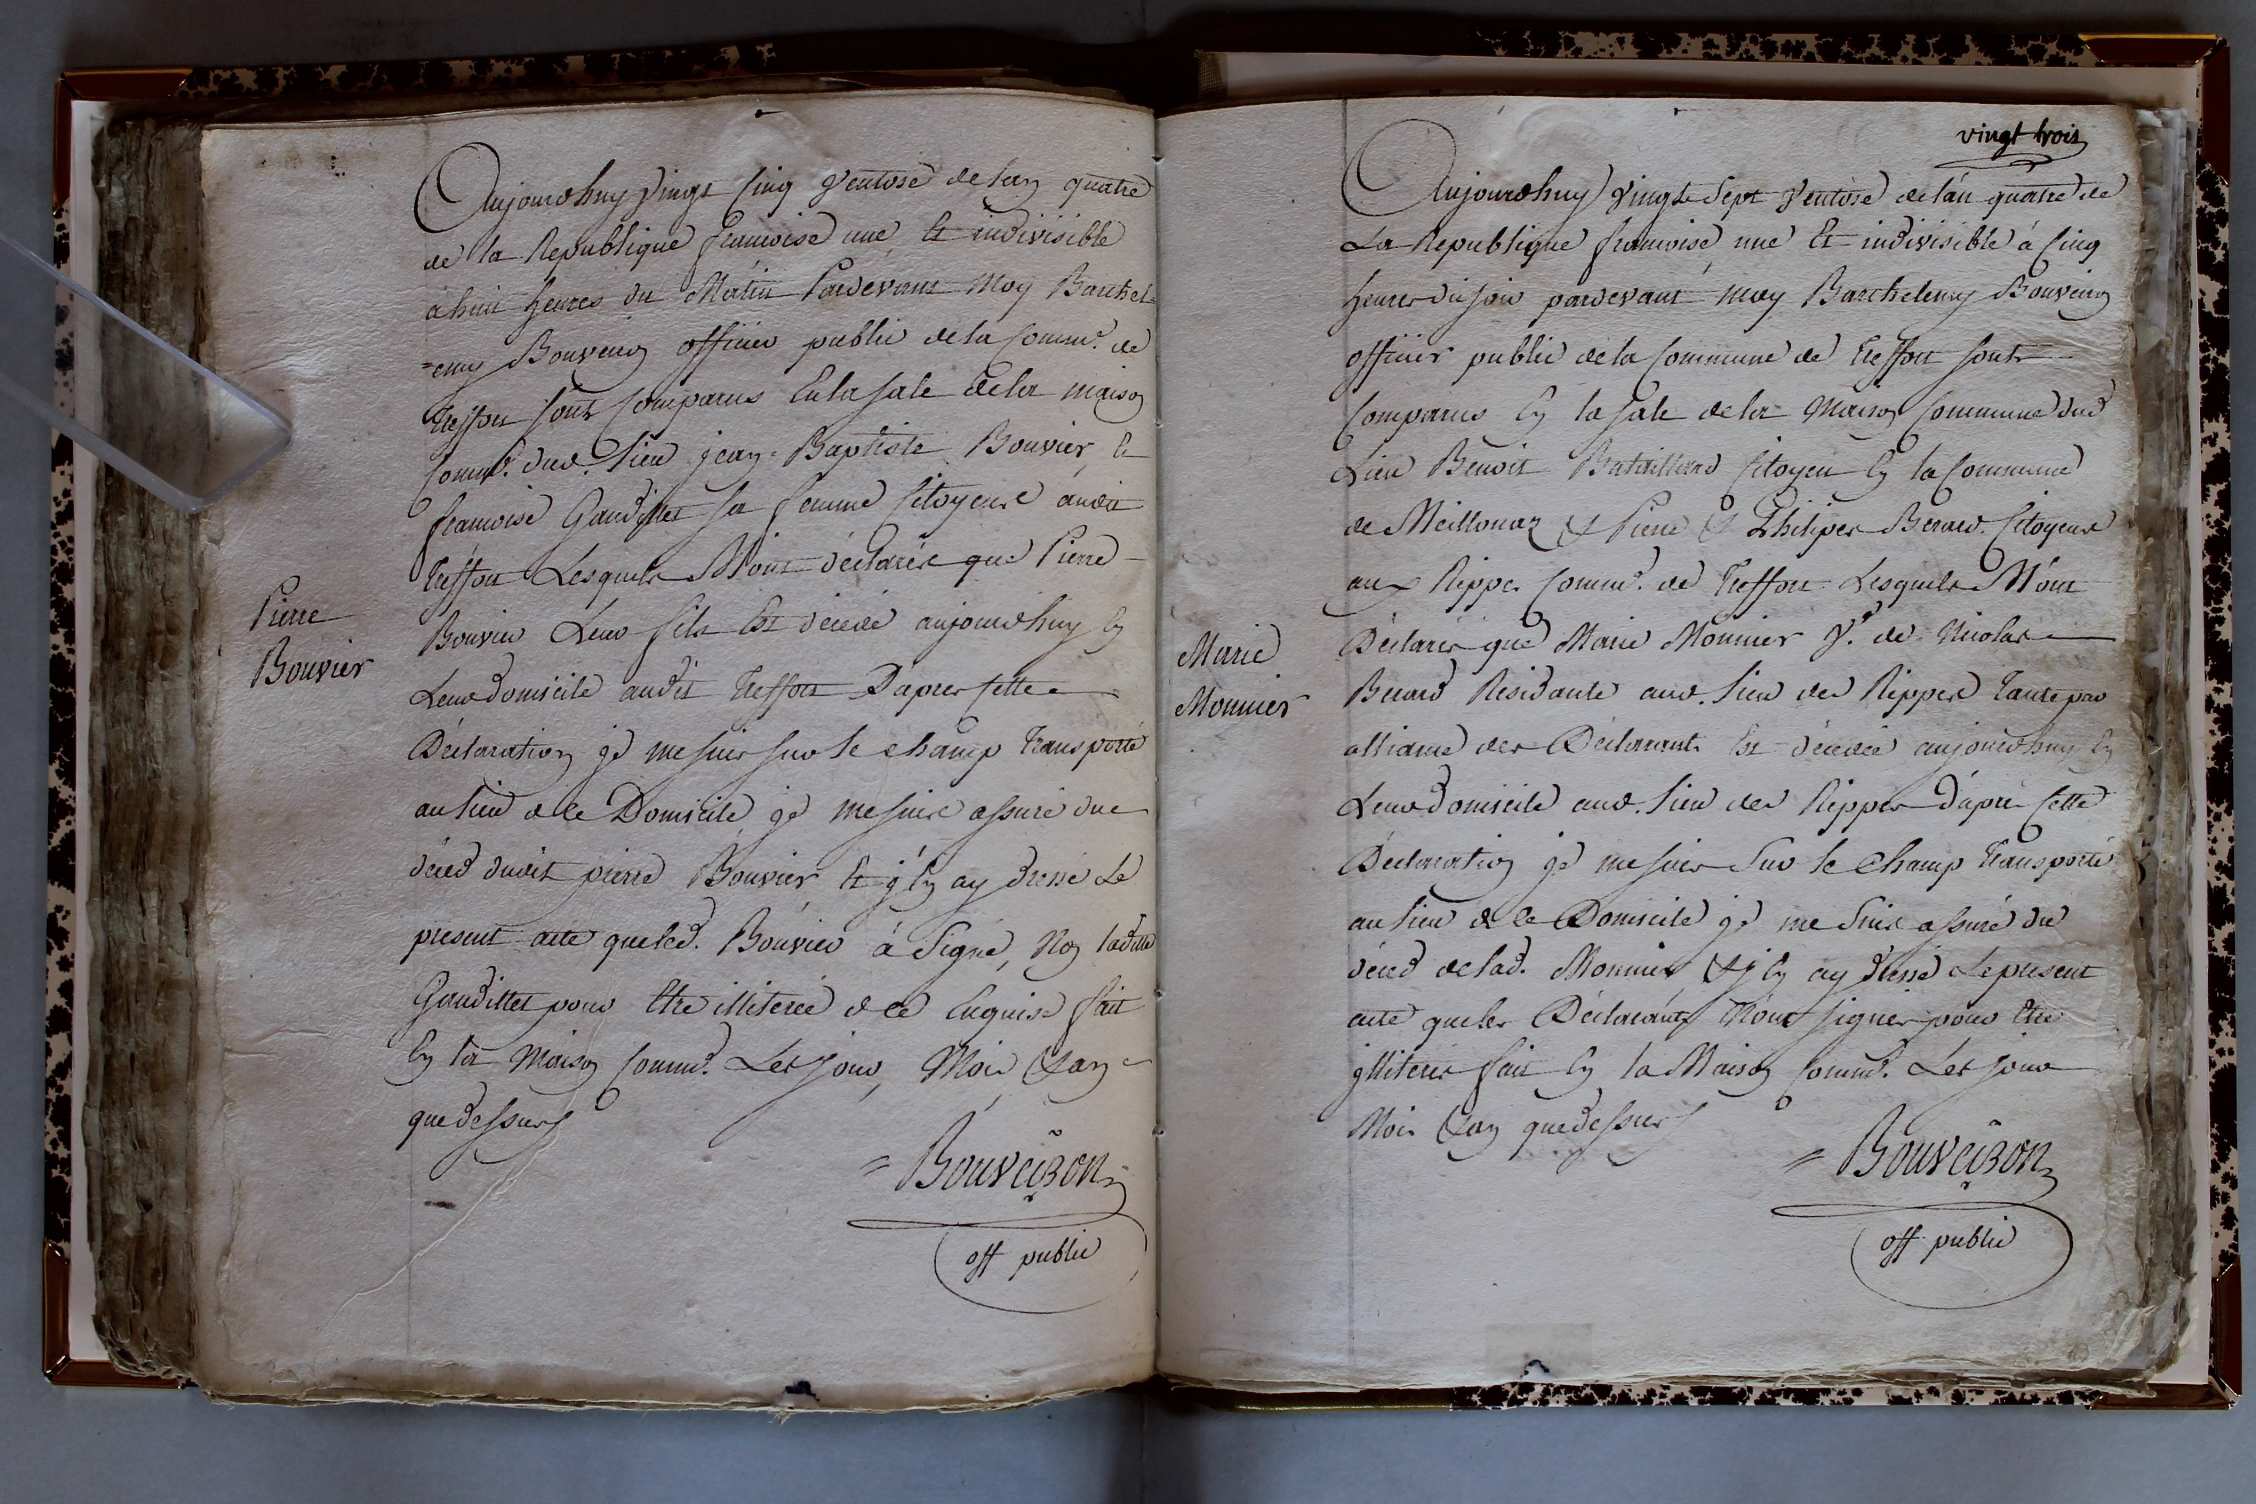 Aujourdhuy vingt cinq ventose de lan quatre
de la Republique francoise une et indivisible
a huit heures du Matin Pardevant Moy Barthel=
=emy Bouveiron officier public de la Comm.e de
treffort sont comparus En la sale de la maison
Comm.e dud. lieu jean-Baptiste Bouvier, et
francoise Gaudillet sa femme citoyens audit
treffort Lesquels M'ont déclarés que Pierre
Bouvier Leur fils Est décédé aujourdhuy En
Leur domicile audit treffort D'apres cette
Déclaration je me suis sur le champ transporté
au lieu de ce Domicile je me suis assuré du
déced dudit pierre Bouvier Et j'En ay dressé Le
present acte que led. Bouvier à signé, Non laditte
Gaudillet pour Etre illiterée de ce Enquise fait
En la Maison Comm.e Les jour, Mois & an
que dessus
Pierre
Bouvier
= Bouveiron
off public
vingt trois
Aujourdhuy vingt Sept ventose de l'an quatre de
La Republique francoise, une Et indivisible à Cinq
heures du soir pardevant moy Barthelemy Bouveiron
officier public de la Commune de treffort sont
Comparus En la sale de la Maison Commune dud
Lieu Benoit Bataillard Citoyen En la Commune
de Meillonaz & Pierre & Philiper Berard Citoyens
aux Rippes Comm.e de treffort Lesquels M'ont
Déclarés que Marie Monnier V.e de Nicolas
Berard Residante aud. lieu des Rippes tante par
alliance des Déclarants Est décédée aujourdhuy En
Leur domicile aud. lieu des Rippes d'après cette
Déclaration je me suis sur le champ transporté
au lieu de ce Domicile je me suis assuré du
déced de lad. Monnier & j'En ay dressé Le present
acte que les Déclarants N'ont signés pour Etre
illiterés fait En la Maison Comm.e Les jour
Mois & an que dessus
Marie
Monnier
= Bouveiron
off public